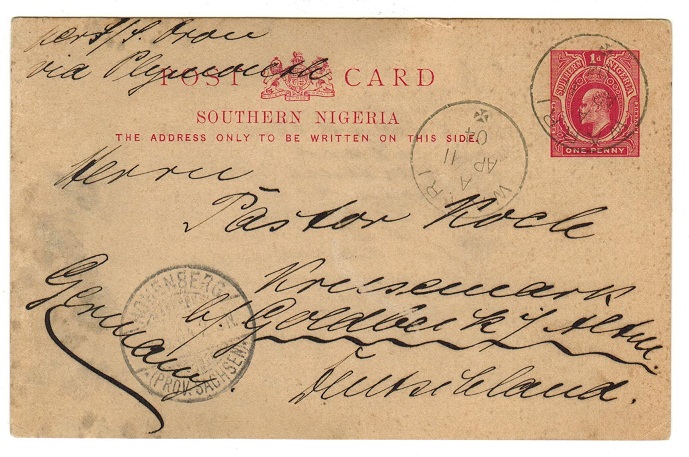 per s/s. Oron
via Plymouth
POST CARD
SOUTHERN NIGERIA
THE ADDRESS ONLY TO BE WRITTEN ON THIS SIDE.
1d
SOUTHERN NIGERIA
ONE PENNY
WARRI
A
AP 11
04
Herrn
Pastor Koch
Krusemark
b/ Goldbeck i/ Altm.
Deutschland.
Germany
HOHENBERG
(PROV. SACHSEN)